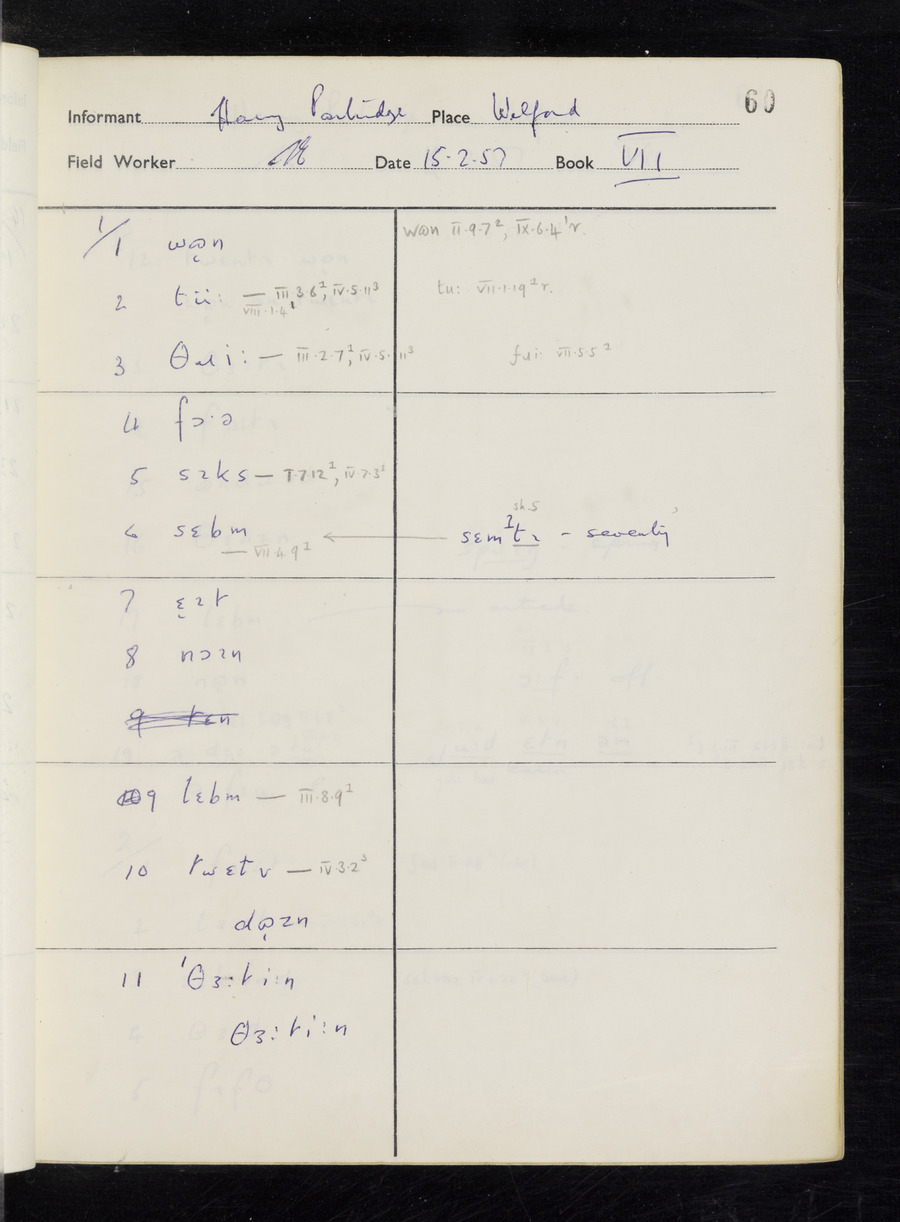 60
Informant Harry Partridge Place Welford
Field Worker Date 15.2.57 Book VII
1/1 wɒ̣n wɒn II.9.7², IX.6.4¹r.
2 tɪi: — III.3.6¹, IV.5.11³ tu: VII.1.19²r.
VIII.1.4¹
3 θɹi: — III.2.7¹, IV.5.11³ fɹi: VII.5.5²
4 fɔ·ə
5 sɪks — I.7.12¹, IV.7.3¹
sh.5
6 sɛbm ← sɛmˀtɪ - seventy
— VII.4.9²
7 ɛ̣ɪt
8 nɔɪn
9 tɛn
9 lɛbm — III.8.9¹
10 twɛtv — IV.3.2³
dɒ̣zn
11 'θɜ:ti:n
θɜ:ti:n